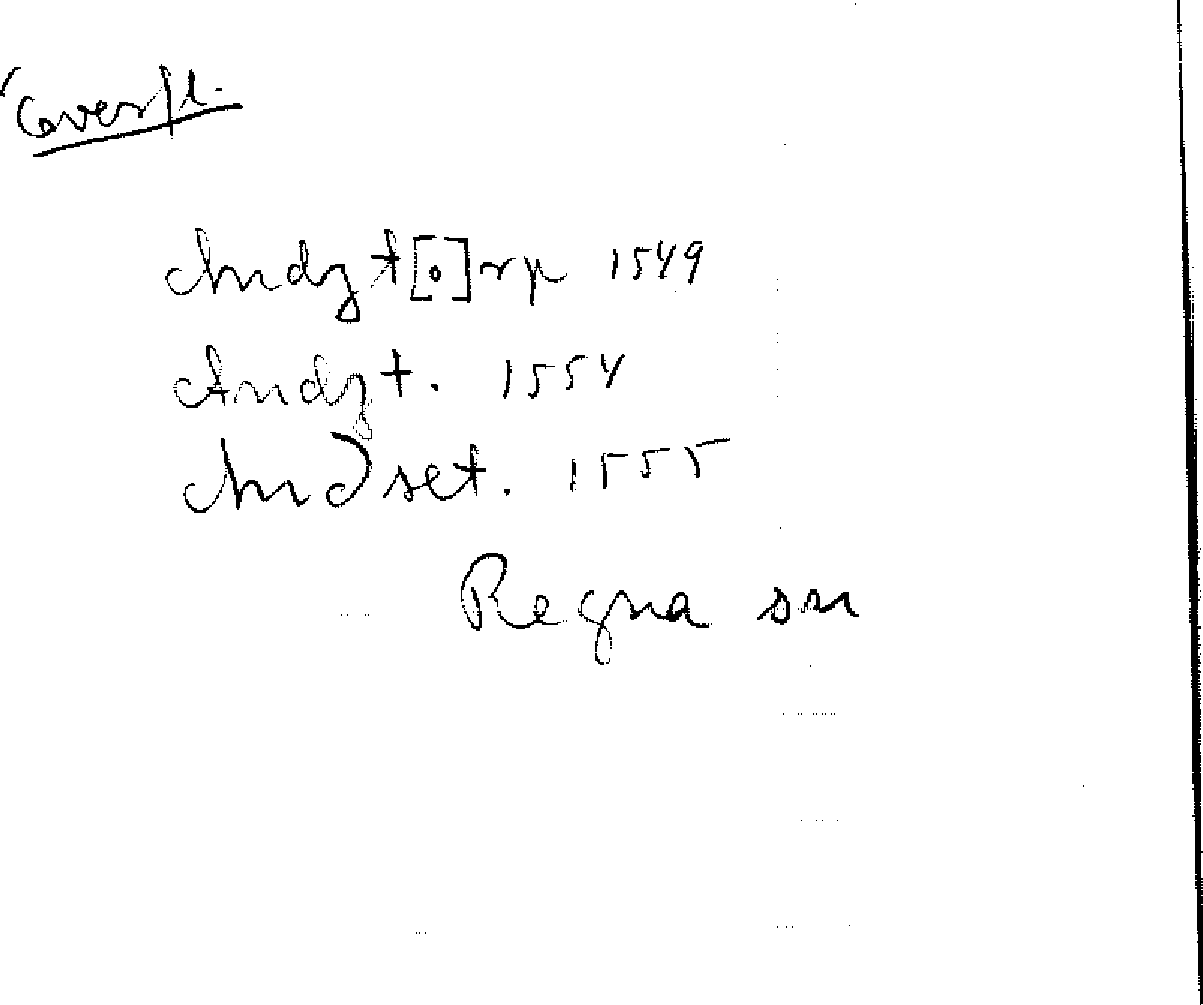 Coverfl.
Andzt[o]rp 1549
Andzt. 1554
Andset. 1555
Regna sn